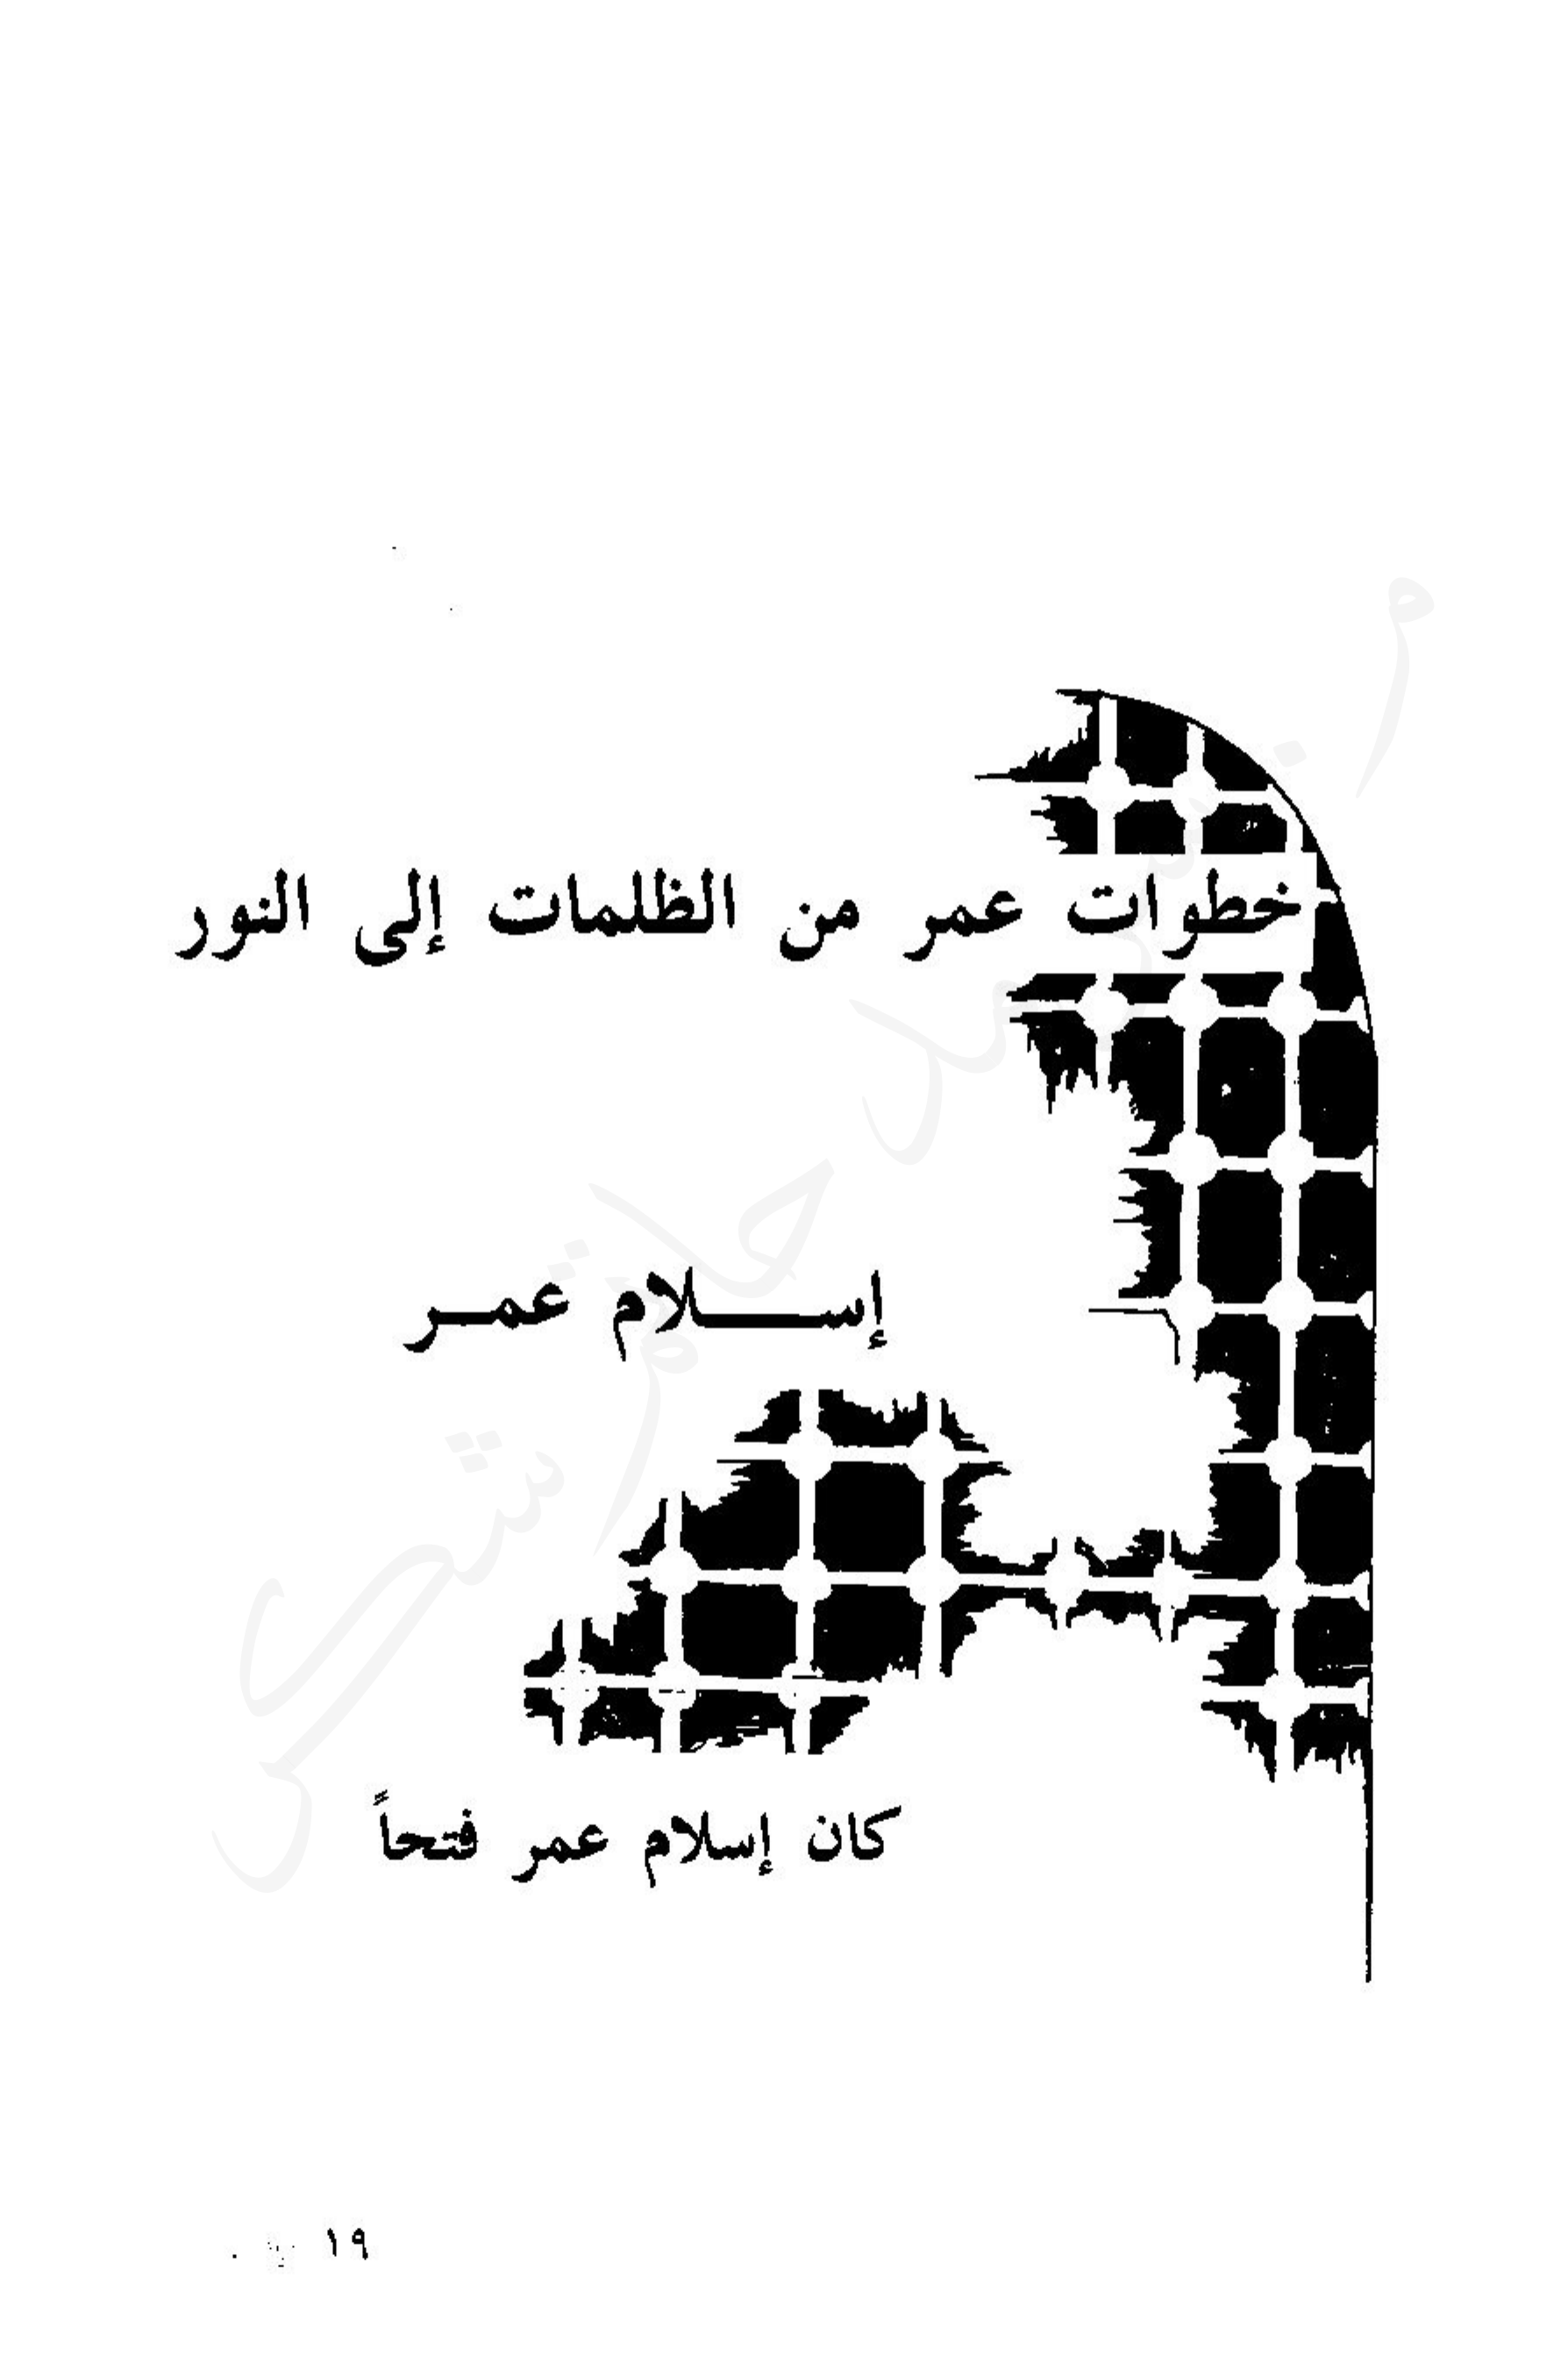 خطوات عمر من الظلمات إلى النور
إســـلام عمـر
كان إسلام عمر فتحاً
١٩